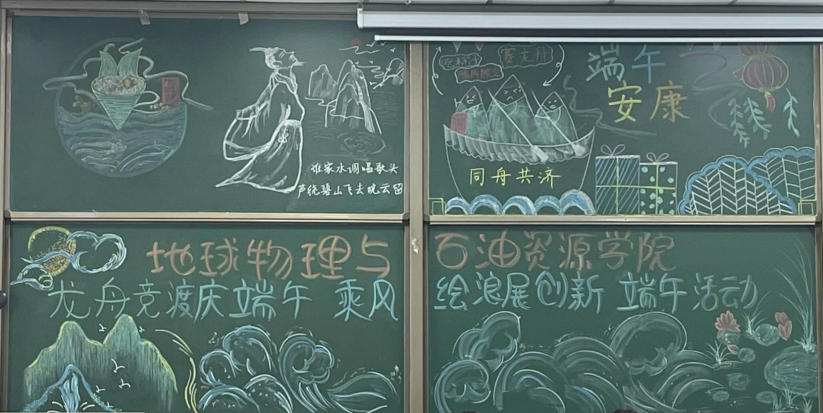 谁家水调唱歌头
声绕碧山飞去晚云留
吃粽子
赛龙舟
端午
安康
同舟共济
地球物理与石油资源学院
龙舟竞渡庆端午 乘风绘浪展创新 端午活动